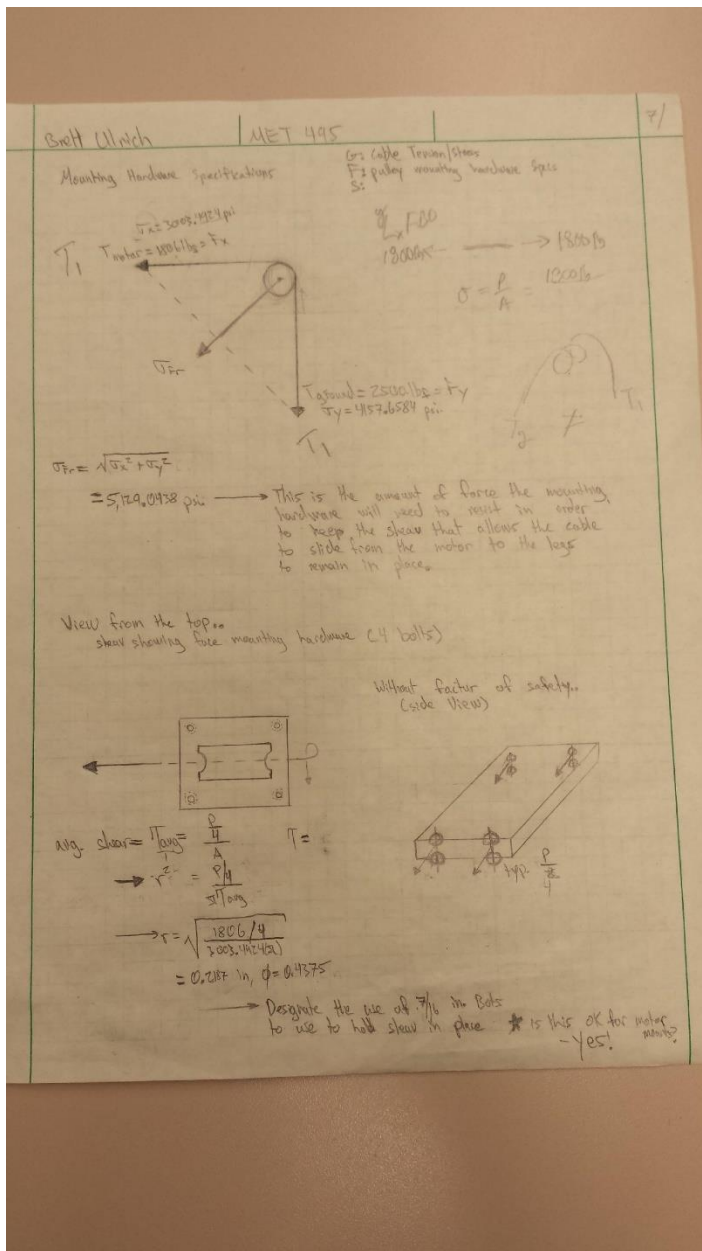 Brett Ulrich
MET 495
7/
Mounting Hardware Specifications
G: Cable Tension/stress
F: pulley mounting hardware specs
S:
σx = 3003.4424 psi
Tmotor = 1806 lbs = Fx
T1
1800lbs
→ 1800 lb
σ = P/A =
σFr
Tground = 2500 lbs = Fy
σy = 4157.6584 psi
T1
T2
T1
σFr = √σx² + σy²
= 5,129.0438 psi → This is the amount of force the mounting
hardware will need to resist in order
to keep the sheav that allows the cable
to slide from the motor to the legs
to remain in place.
View from the top..
sheav showing face mounting hardware (4 bolts)
Without factor of safety..
(side View)
avg. shear = Tavg = P/4 / A
T =
→ r² = P/4 / πTavg
typ. P/4
→ r = √1806/4 / 3003.4424(π)
= 0.2187 in, φ = 0.4375
→ Designate the use of 7/16 in. Bolts
to use to hold sheav in place
* is this OK for motor
mounts?
- Yes!